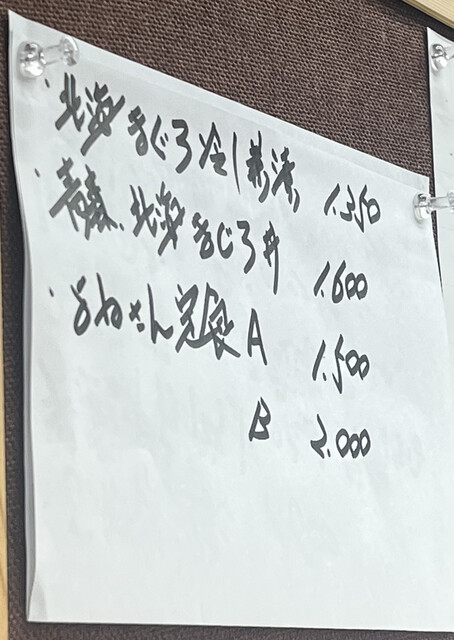 ・北海まぐろ冷し茶漬 1.350
・青森、北海まぐろ丼 1.600
・よねさん定食A 1.500
B 2.000